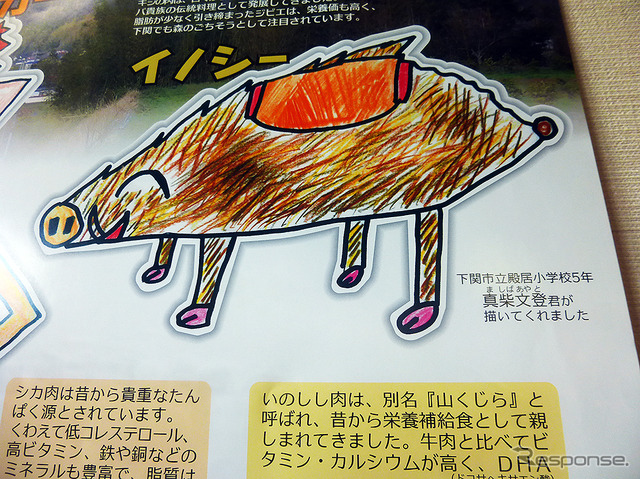 パ貴族の伝統料理として発展してきま
脂肪が少なく引き締まったジビエは、栄養価も高く、
下関でも森のごちそうとして注目されています。
イノシー
下関市立殿居小学校5年
ましばあやと
真柴文登君が
描いてくれました
シカ肉は昔から貴重なたん
ぱく源とされています。
くわえて低コレステロール、
高ビタミン、鉄や銅などの
ミネラルも豊富で、脂質は
いのしし肉は、別名『山くじら』と
呼ばれ、昔から栄養補給食として親
しまれてきました。牛肉と比べてビ
タミン・カルシウムが高く、DHA
(ドコサヘキサエン酸)
Response.